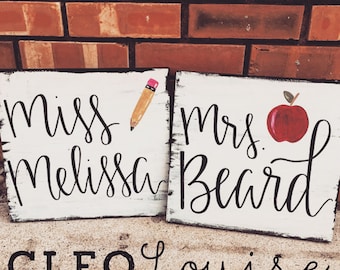 Miss
Melissa
Mrs.
Beard
CLEO Louise